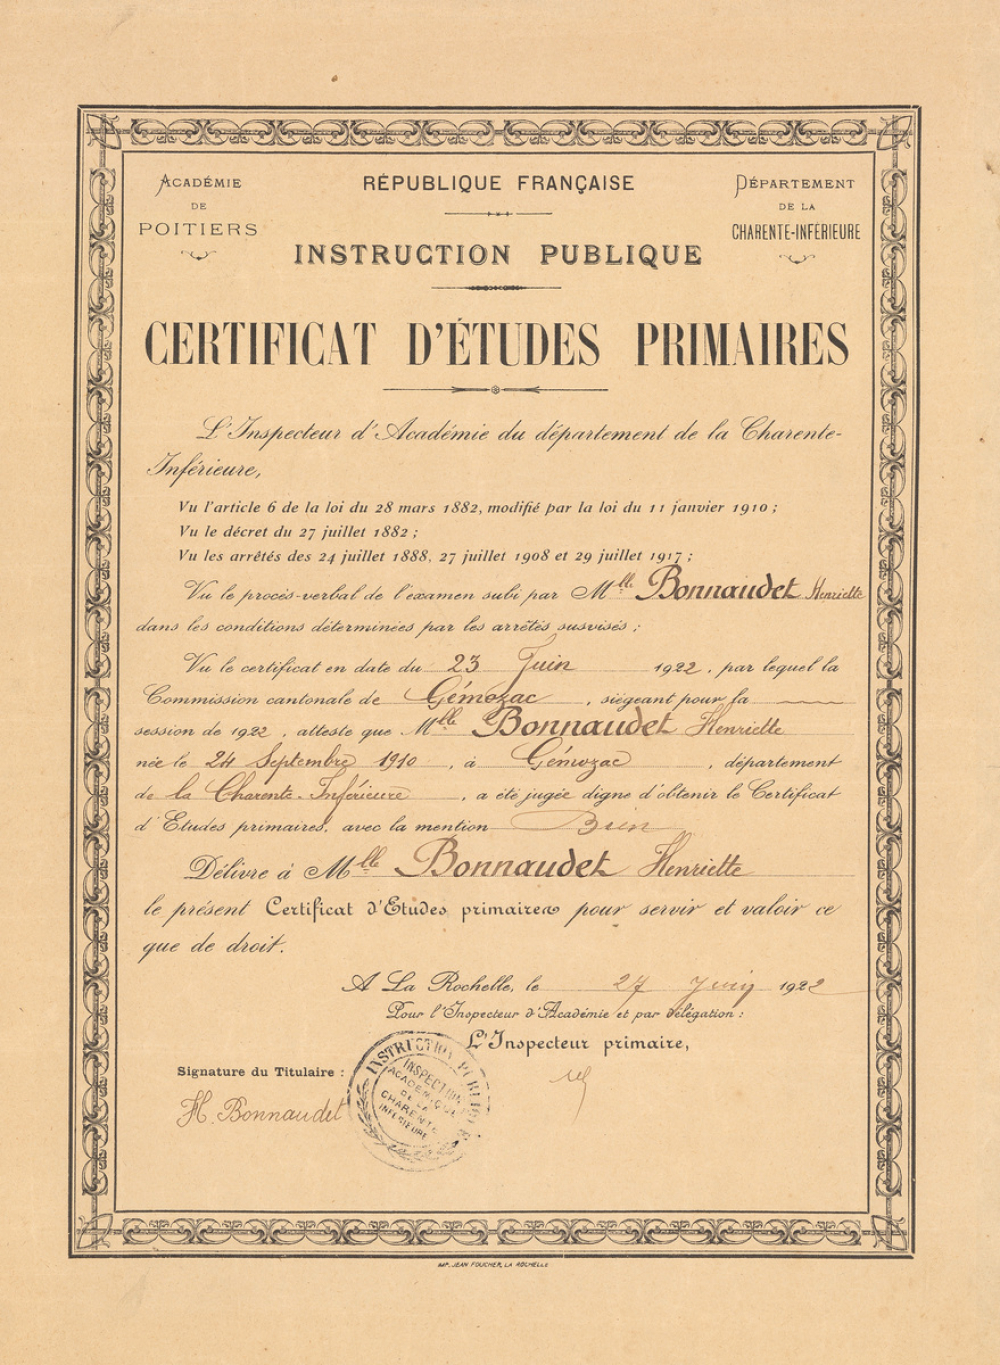 ACADÉMIE
DE
POITIERS
RÉPUBLIQUE FRANÇAISE
INSTRUCTION PUBLIQUE
DÉPARTEMENT
DE LA
CHARENTE-INFÉRIEURE
CERTIFICAT D'ÉTUDES PRIMAIRES
L'Inspecteur d'Académie du département de la Charente-
Inférieure,
Vu l'article 6 de la loi du 28 mars 1882, modifié par la loi du 11 janvier 1910 ;
Vu le décret du 27 juillet 1882 ;
Vu les arrêtés des 24 juillet 1888, 27 juillet 1908 et 29 juillet 1917 ;
Vu le procès-verbal de l'examen subi par Mlle Bonnaudet Henriette
dans les conditions déterminées par les arrêtés susvisés ;
Vu le certificat en date du 23 Juin 1922, par lequel la
Commission cantonale de Gémozac, siégeant pour la
session de 1922, atteste que Mlle Bonnaudet Henriette
née le 24 Septembre 1910, à Gémozac, département
de la Charente-Inférieure, a été jugée digne d'obtenir le Certificat
d'Etudes primaires, avec la mention Bien
Délivré à Mlle Bonnaudet Henriette
le présent Certificat d'Etudes primaires pour servir et valoir ce
que de droit.
A La Rochelle, le 27 Juin 1922
Pour l'Inspecteur d'Académie et par délégation :
L'Inspecteur primaire,
Signature du Titulaire :
H. Bonnaudet
INSTRUCTION PUBLIQUE
INSPECTION
ACADÉMIQUE
DE LA
CHARENTE
INFÉRIEURE
IMP. JEAN FOUCHER, LA ROCHELLE